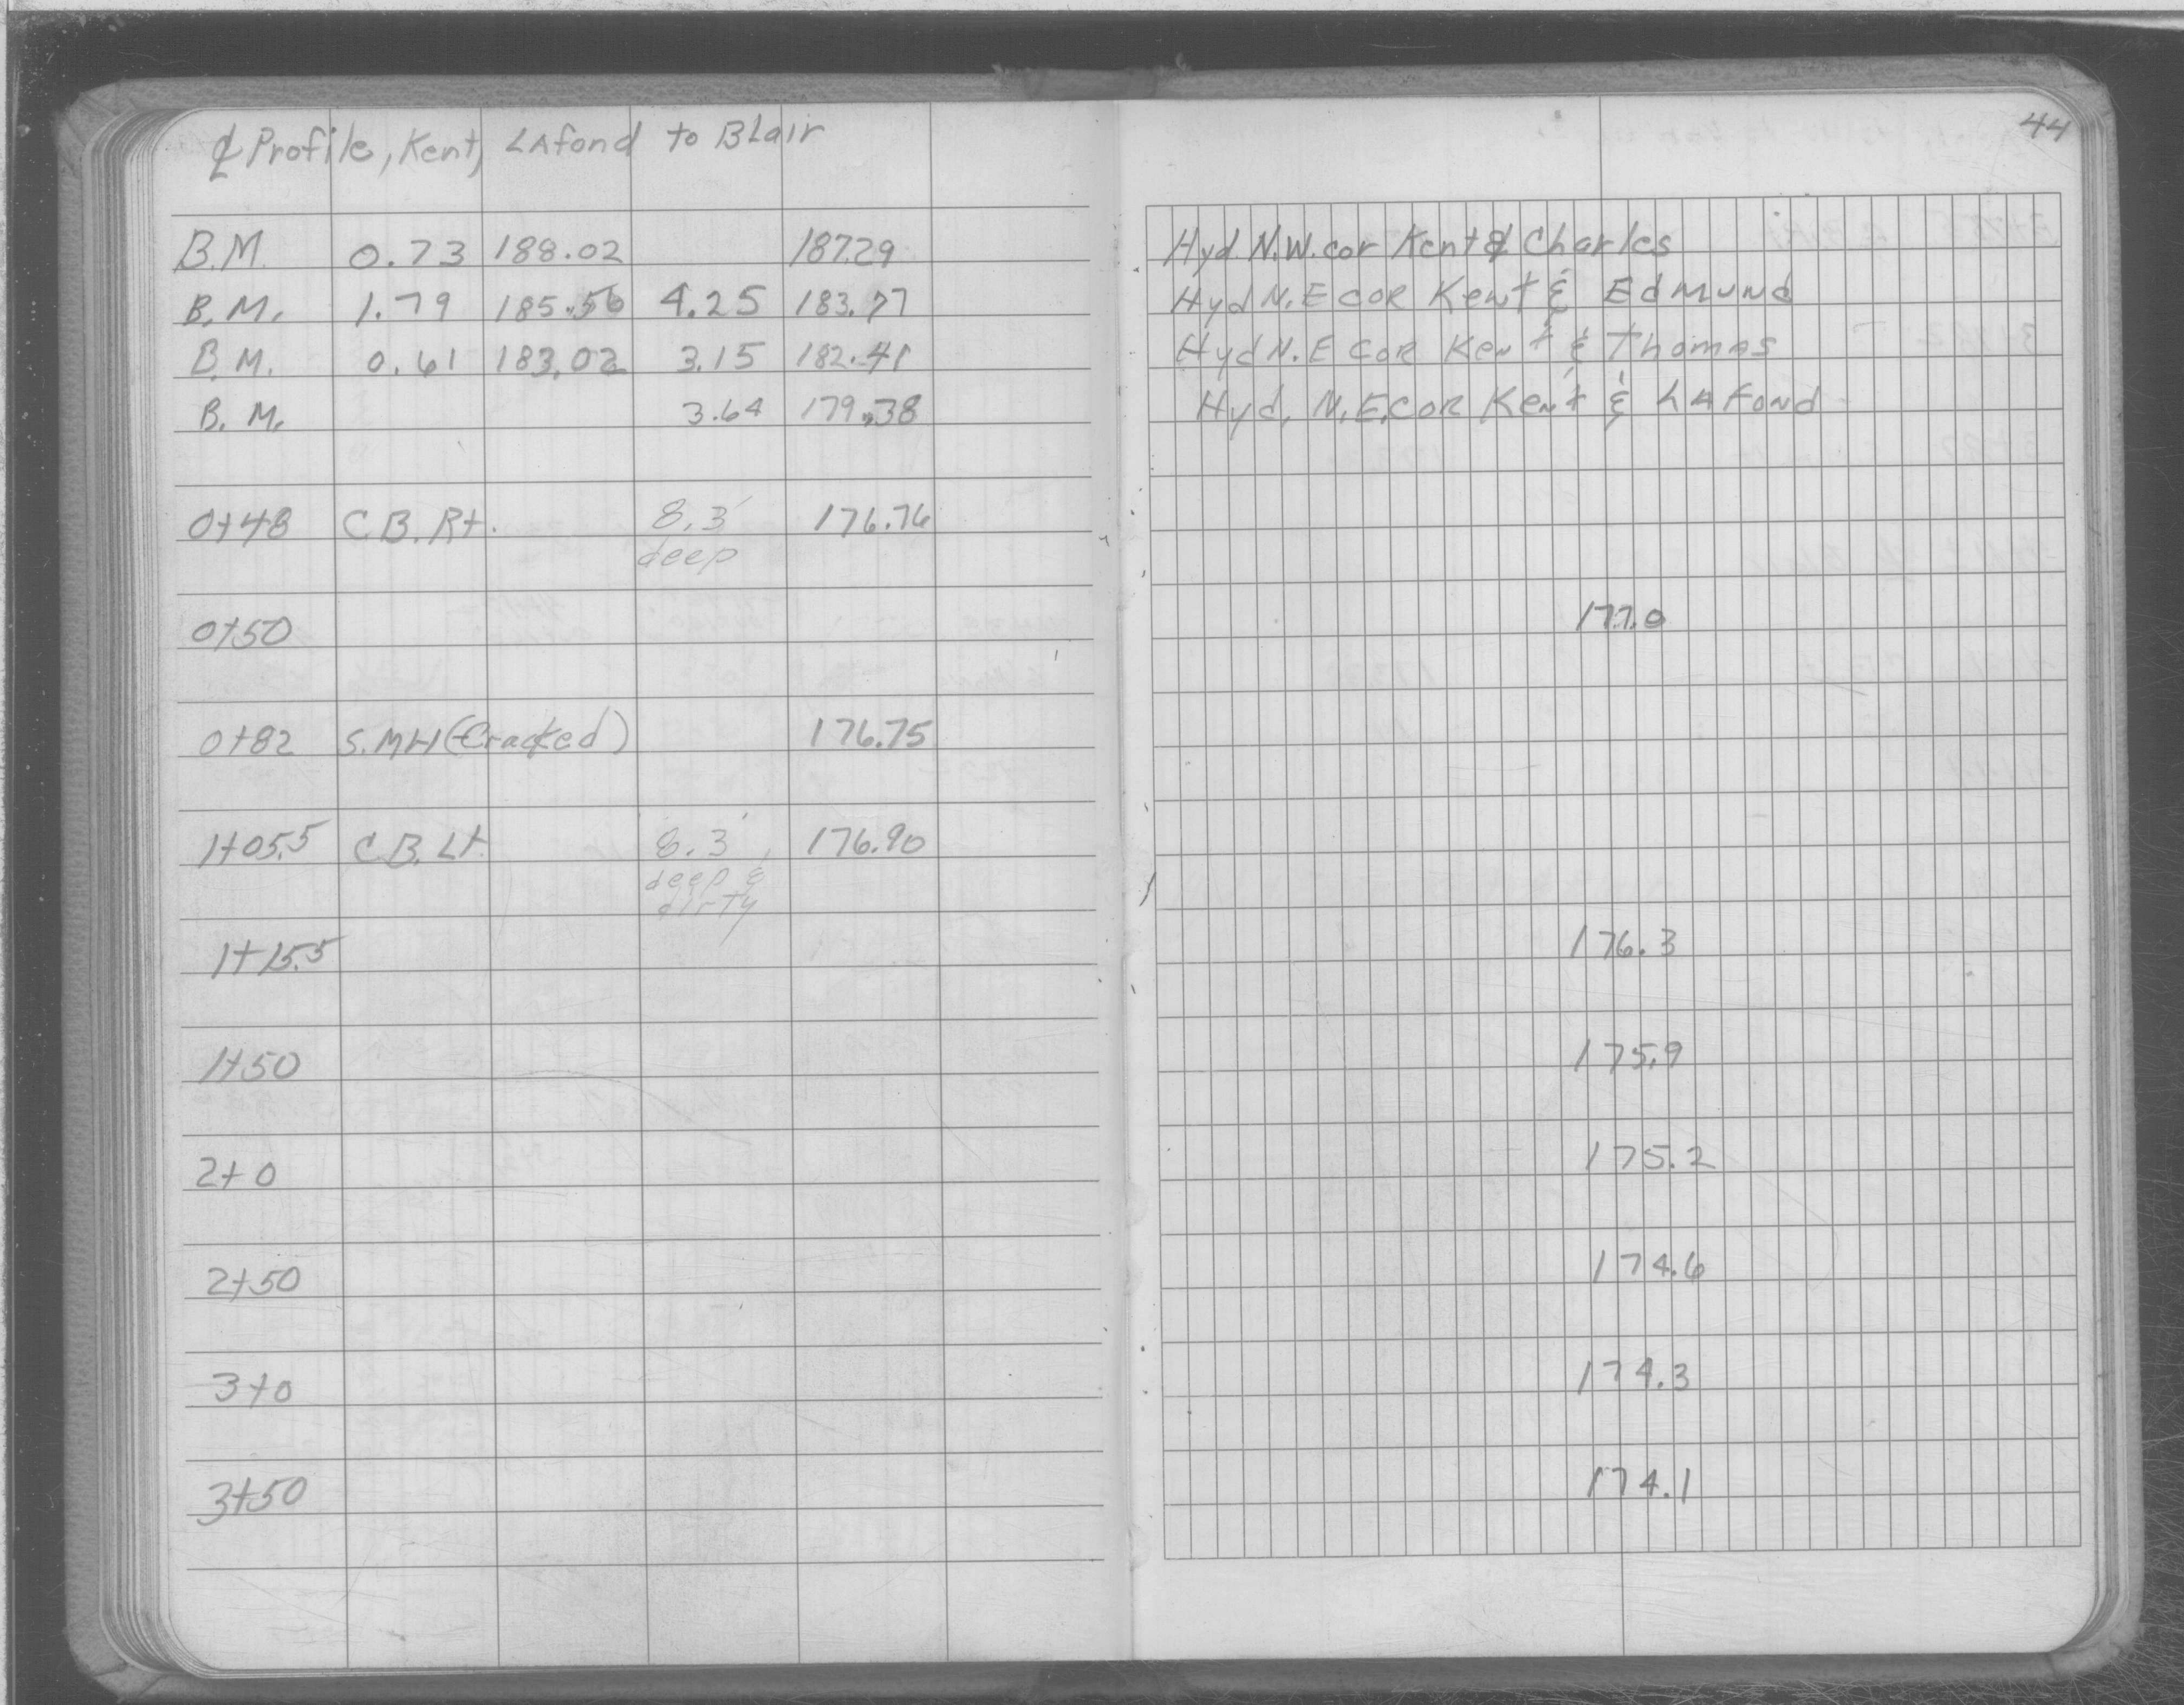 44
℄ Profile, Kent, LAfond to BLair
B.M. 0.73 188.02 187.29 Hyd. N.W. cor Kent & Charles
B.M. 1.79 185.56 4.25 183.77 Hyd N.E COR Kent & Edmund
B.M. 0.61 183.02 3.15 182.41 Hyd N.E COR Kent & Thomas
B.M. 3.64 179.38 Hyd. N.E. COR Kent & LAfond
0+48 C.B. Rt. 8.3' 176.76
deep
0+50 177.0
0+82 S.MH (Cracked) 176.75
1+05.5 C.B. Lt. 8.3' 176.90
deep &
dirty
1+15.5 176.3
1+50 175.9
2+0 175.2
2+50 174.6
3+0 174.3
3+50 174.1